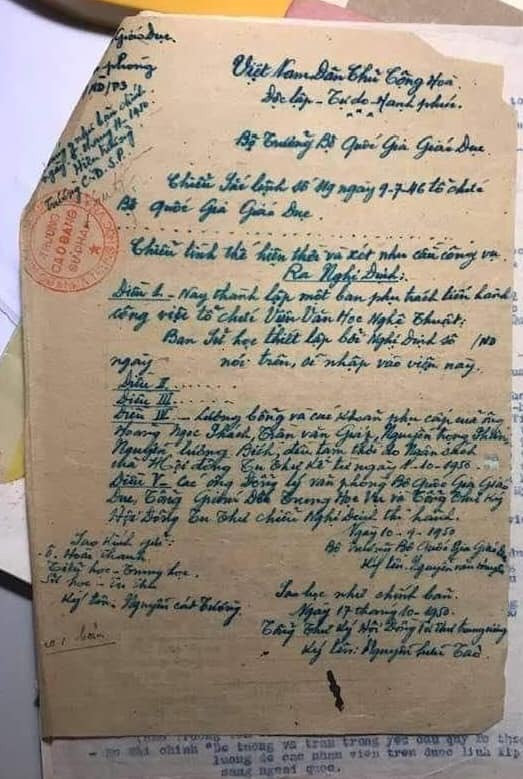 Giáo Dục.
phòng
NĐ/P3
Trường C.Đ.S.P.
TRƯỜNG
CAO ĐẲNG
SƯ PHẠM
Việt Nam Dân Chủ Cộng Hoà
Độc lập - Tự do - Hạnh phúc.
Bộ Trưởng Bộ Quốc Gia Giáo Dục
Chiếu Sắc lệnh số 119 ngày 9-7-46 tổ chức
Bộ Quốc Gia Giáo Dục
Chiếu tình thế hiện thời và xét nhu cầu công vụ
Ra Nghị Định:
Điều I. - Nay thành lập một ban phụ trách tiến hành
công việc tổ chức Viện Văn Học Nghệ Thuật:
Ban Sử học thiết lập bởi Nghị Định số /NĐ
ngày nói trên, sẽ nhập vào viện này.
Điều II
Điều III
Điều IV - Lương bổng và các khoản phụ cấp của ông
Hoàng Ngọc Phách, Trần văn Giáp, Nguyễn trọng
Nguyễn Lương Bích, đều tạm thời do Ngân sách
của Hội đồng Tu Thư kể từ ngày 1-10-1950.
Điều V - Các ông Đổng lý văn phòng Bộ Quốc Gia Giáo
Dục, Tổng Giám Đốc Trung Học Vụ và Tổng Thư Ký
Hội Đồng Tu Thư chiếu Nghị Định thi hành.
Ngày 10-9-1950
Bộ trưởng Bộ Quốc Gia Giáo Dục
Ký tên: Nguyễn văn Huyên
Sao kính gửi:
Ô. Hoài Thanh
Tiểu học - Trung học.
Sử học -
Ký tên: Nguyễn Tường
Sao lục như chính bản.
Ngày 17 tháng 10-1950.
Tổng Thư Ký Hội Đồng Tu thư trung ương
Ký tên: Nguyễn Hữu Tảo
1 bản
lương do các nhân viên trên được lĩnh
sang ngoại quốc.